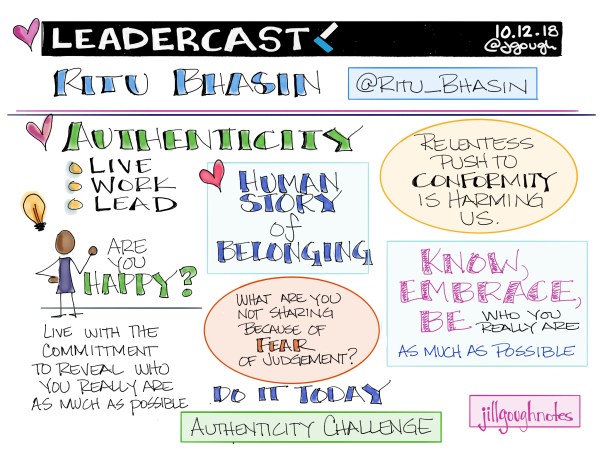 LEADERCAST
10.12.18
@jgough
RITU BHASIN
@RITU_BHASIN
AUTHENTICITY
LIVE
WORK
LEAD
HUMAN
STORY
of
BELONGING
RELENTLESS
PUSH TO
CONFORMITY
IS HARMING
US.
ARE
YOU
HAPPY?
KNOW,
EMBRACE,
BE WHO YOU
REALLY ARE
AS MUCH AS POSSIBLE
WHAT ARE YOU
NOT SHARING
BECAUSE OF
FEAR
OF JUDGEMENT?
LIVE WITH THE
COMMITTMENT
TO REVEAL WHO
YOU REALLY ARE
AS MUCH AS POSSIBLE
DO IT TODAY
AUTHENTICITY CHALLENGE
jillgoughnotes